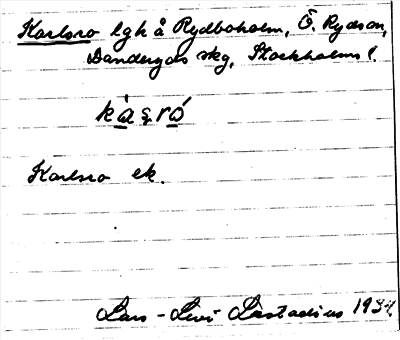 Karlsro lgh å Rydboholm, Ö. Ryds sn,
Danderyds skg, Stockholms l.
Karlsro ek.
Lars-Levi Læstadius 1934.